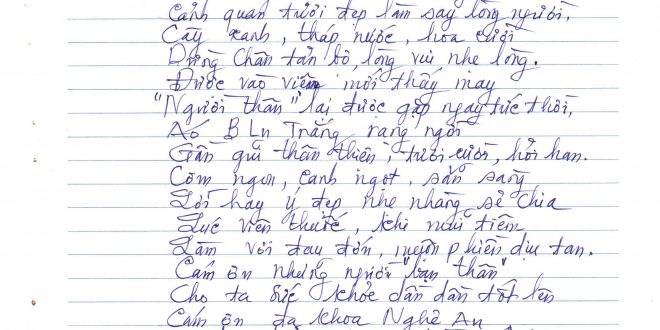 Cảnh quan tươi đẹp làm say lòng người,
Cây xanh, tháp nước, hoa cười
Dừng chân tản bộ, lòng vui nhẹ lòng.
Được vào viện mới thấy may
"Người thân" lại được gặp ngay tức thời,
Áo BLu Trắng rạng ngời
Gần gũi thân thiện, tươi cười, hỏi han.
Cơm ngon, canh ngọt, sẵn sàng
Lời hay ý đẹp nhẹ nhàng sẻ chia
Lúc viên thuốc, khi mũi tiêm
Làm vơi đau đớn, muộn phiền dịu tan.
Cám ơn những người "bạn thân"
Cho ta sức khỏe dần dần tốt lên
Cám ơn đa khoa Nghệ An